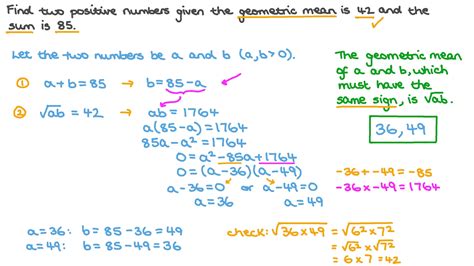 Find two positive numbers given the geometric mean is 42 and the
sum is 85.
Let the two numbers be a and b (a,b>0).
① a+b=85 → b=85-a
② √ab = 42 → ab = 1764
a(85-a) = 1764
85a-a² = 1764
0 = a²-85a+1764
0 = (a-36)(a-49)
a-36=0 or a-49=0
a=36 a=49
a=36: b=85-36=49
a=49: b=85-49=36
The geometric mean
of a and b, which
must have the
same sign, is √ab.
36, 49
-36+-49=-85
-36×-49=1764
check: √36×49 = √6²×7²
= √6² × √7²
= 6×7 = 42